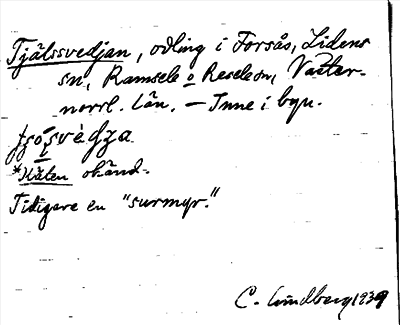 Tjälssvedjan, odling i Forsås, Lidens
sn, Ramsele o Resele sn, Väster-
norrl. län. — Inne i byn.
*Näten okänd.
Tidigare en "surmyr."
C. Lindberg 1939